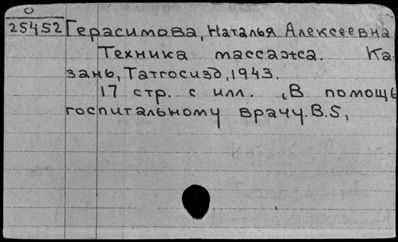 0
25452 Герасимова, Наталья Алексеевна
Техника массажа. Ка-
зань, Татгосизд, 1943.
17 стр. с илл. (В помощь
госпитальному врачу. В.5,